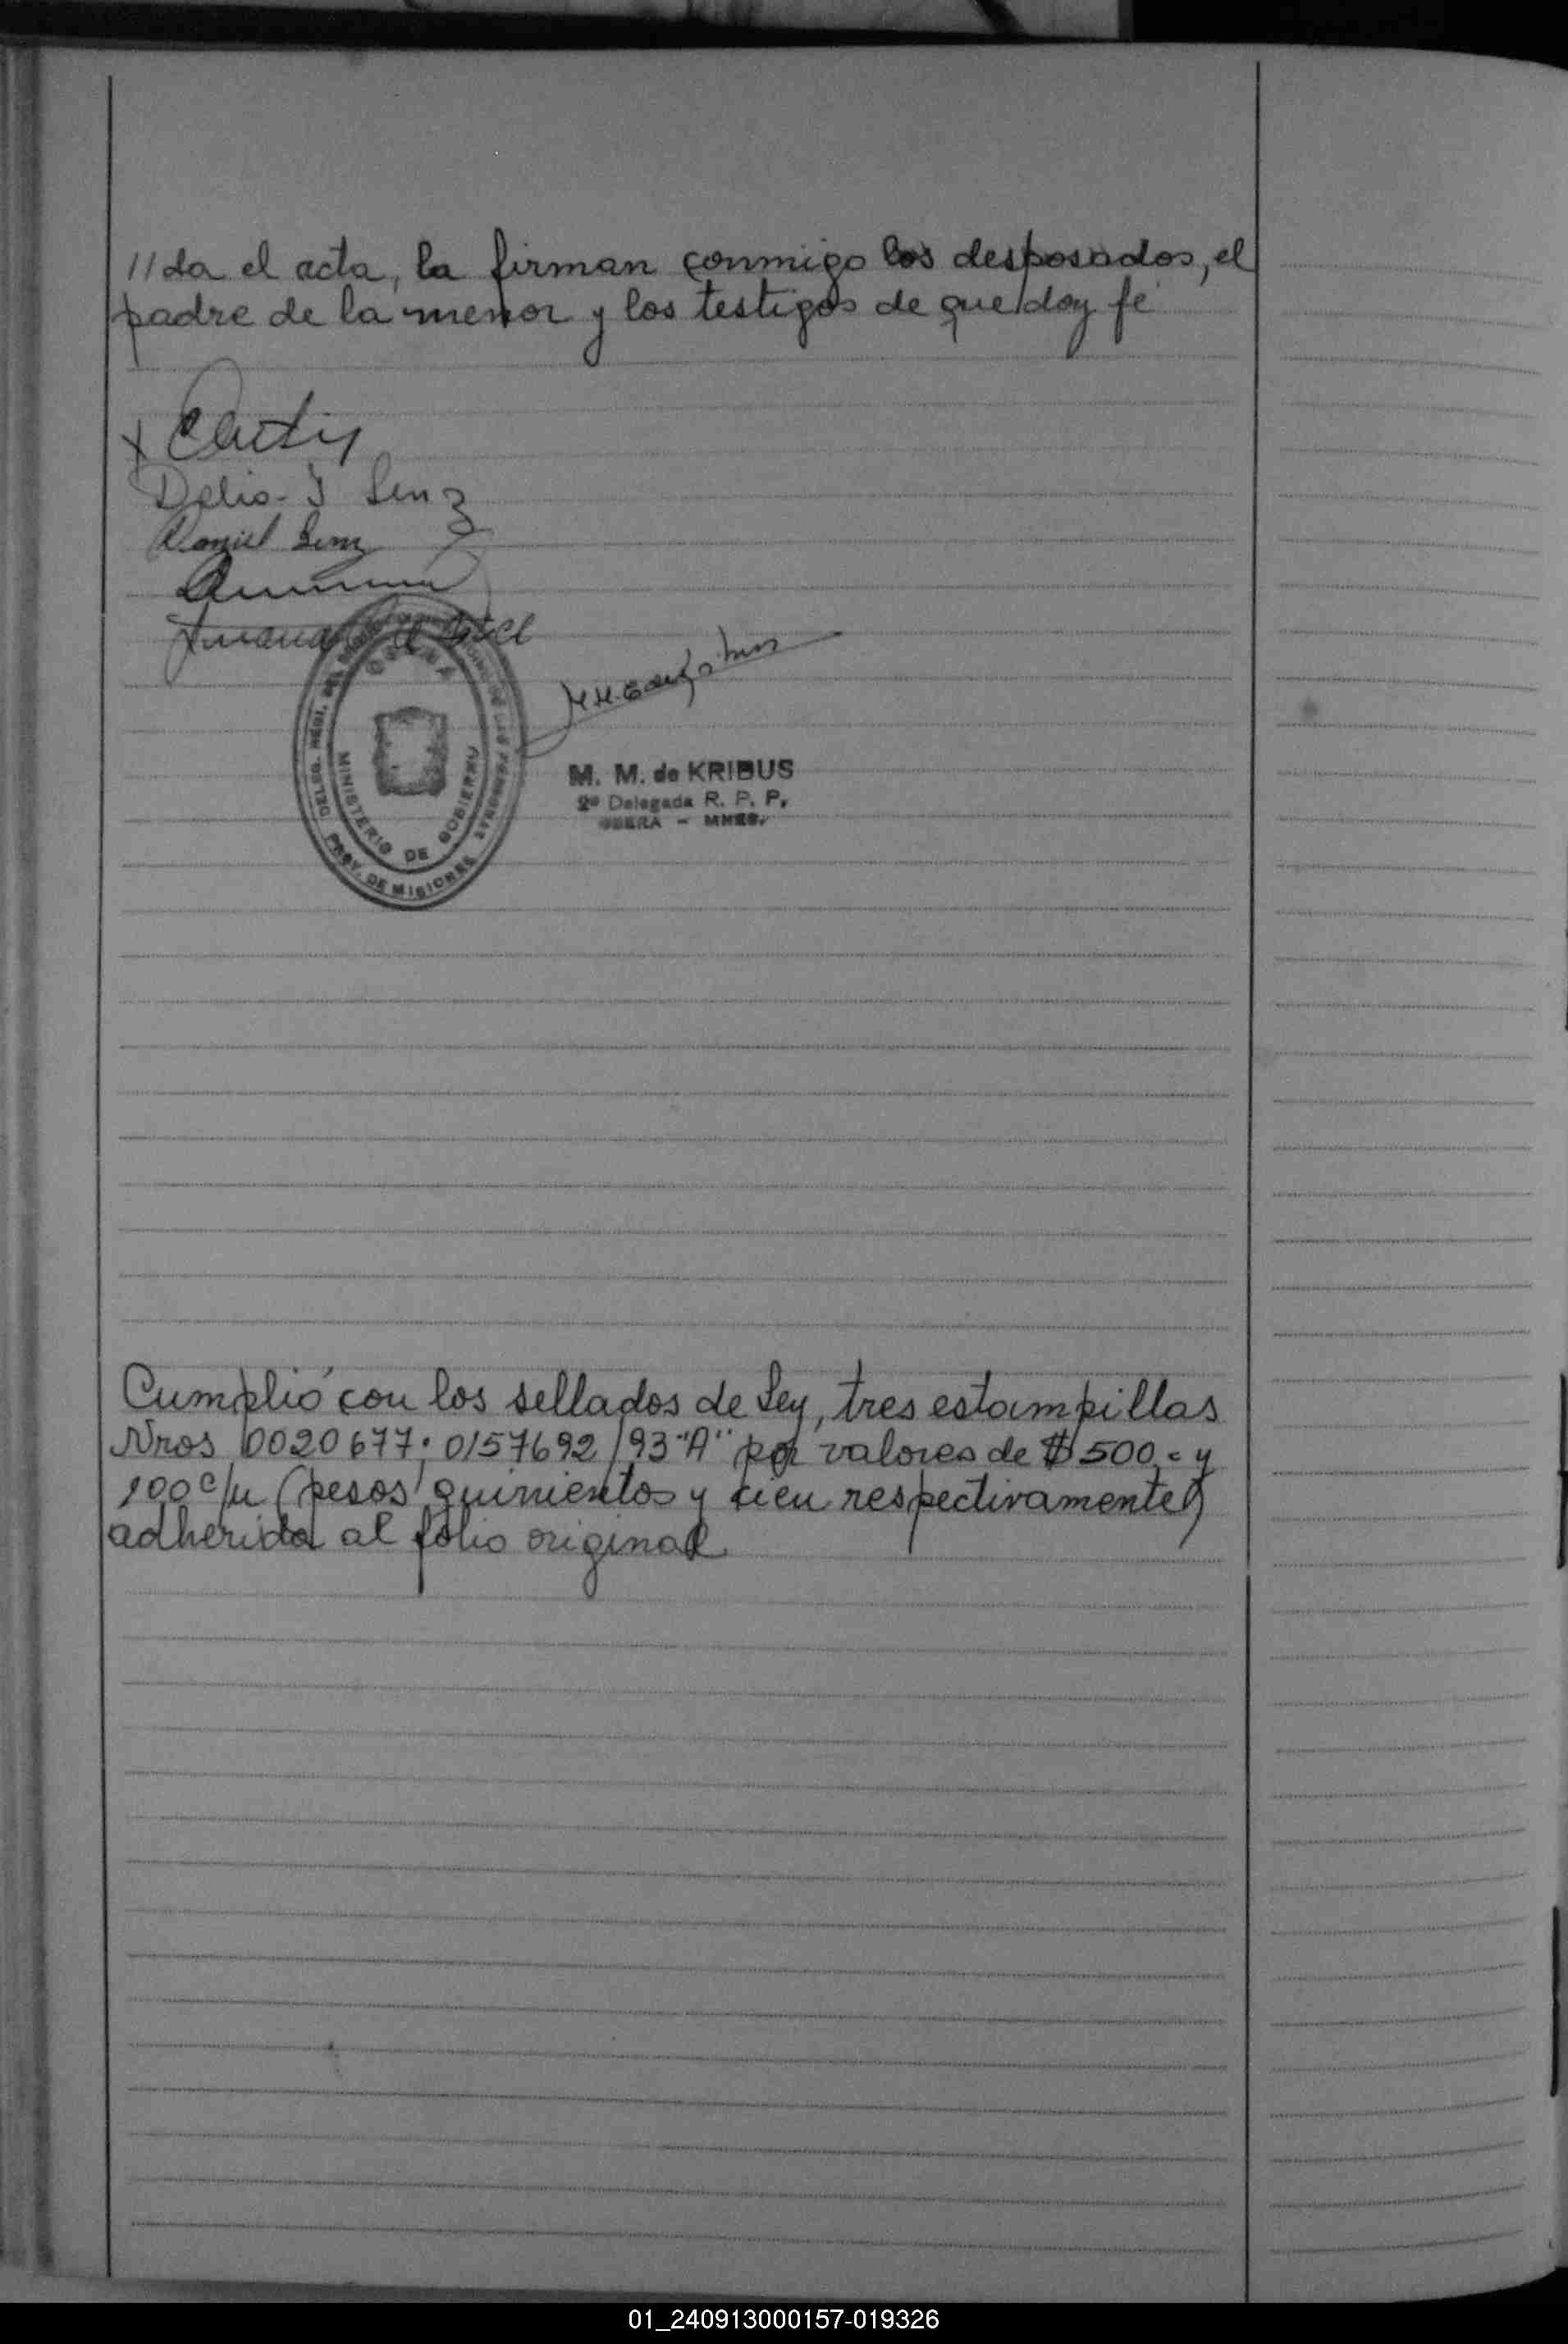 //da el acta, la firman conmigo los desposados, el
padre de la menor y los testigos de que doy fé
Delia J Lenz
Daniel Lenz
Juana
OBERA
DELEG. REGI. DEL
PROV. DE MISIONES
MINISTERIO DE GOBIERNO
M. M. de KRIBUS
2ª Delegada R. P. P.
OBERA - MNES.
Cumplió con los sellados de Ley, tres estampillas
Nros 0020677; 0157692/93 "A" por valores de $ 500.= y
100 c/u (pesos quinientos y cien respectivamente)
adherida al folio original
01_240913000157-019326